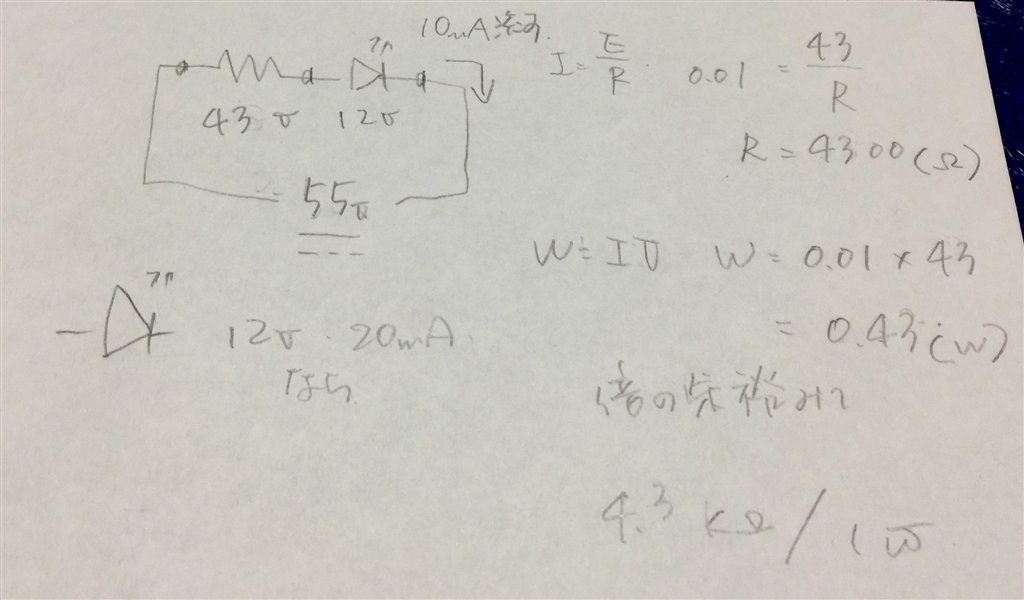 10mA流す.
43v 12v
55v
I = E/R. 0.01 = 43/R
R = 4300 (Ω)
W = IV W = 0.01 × 43
= 0.43 (W)
12v. 20mA.
なら.
倍の余裕みて
4.3 kΩ / 1W